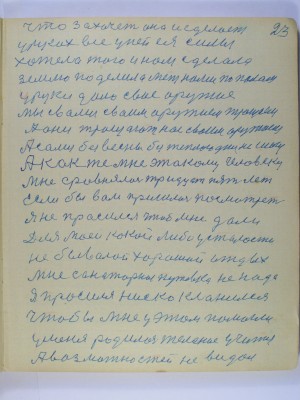 23
что захочет она и сделает
у руках все у ней ея силы
хотела того и ном сделала
землю поделила метнами по
у руки дало свое оружие
мы свали своим оружием
А они трощат нас своим оружием
А сами бы весны бы теплого дня не
А как же мне этакому человеку
мне сровнялся тридцат пят лет
Если бы вам пришлося посмотрет
Я не просился чтоб мне дали
Для моей какой либо усталости
не бывалой хорошай отдых
мне санаторная путевка не нада
Я просился ниско кланился
чтобы мне у этом помагли
у меня родилося желание учится
А возможностей не видал